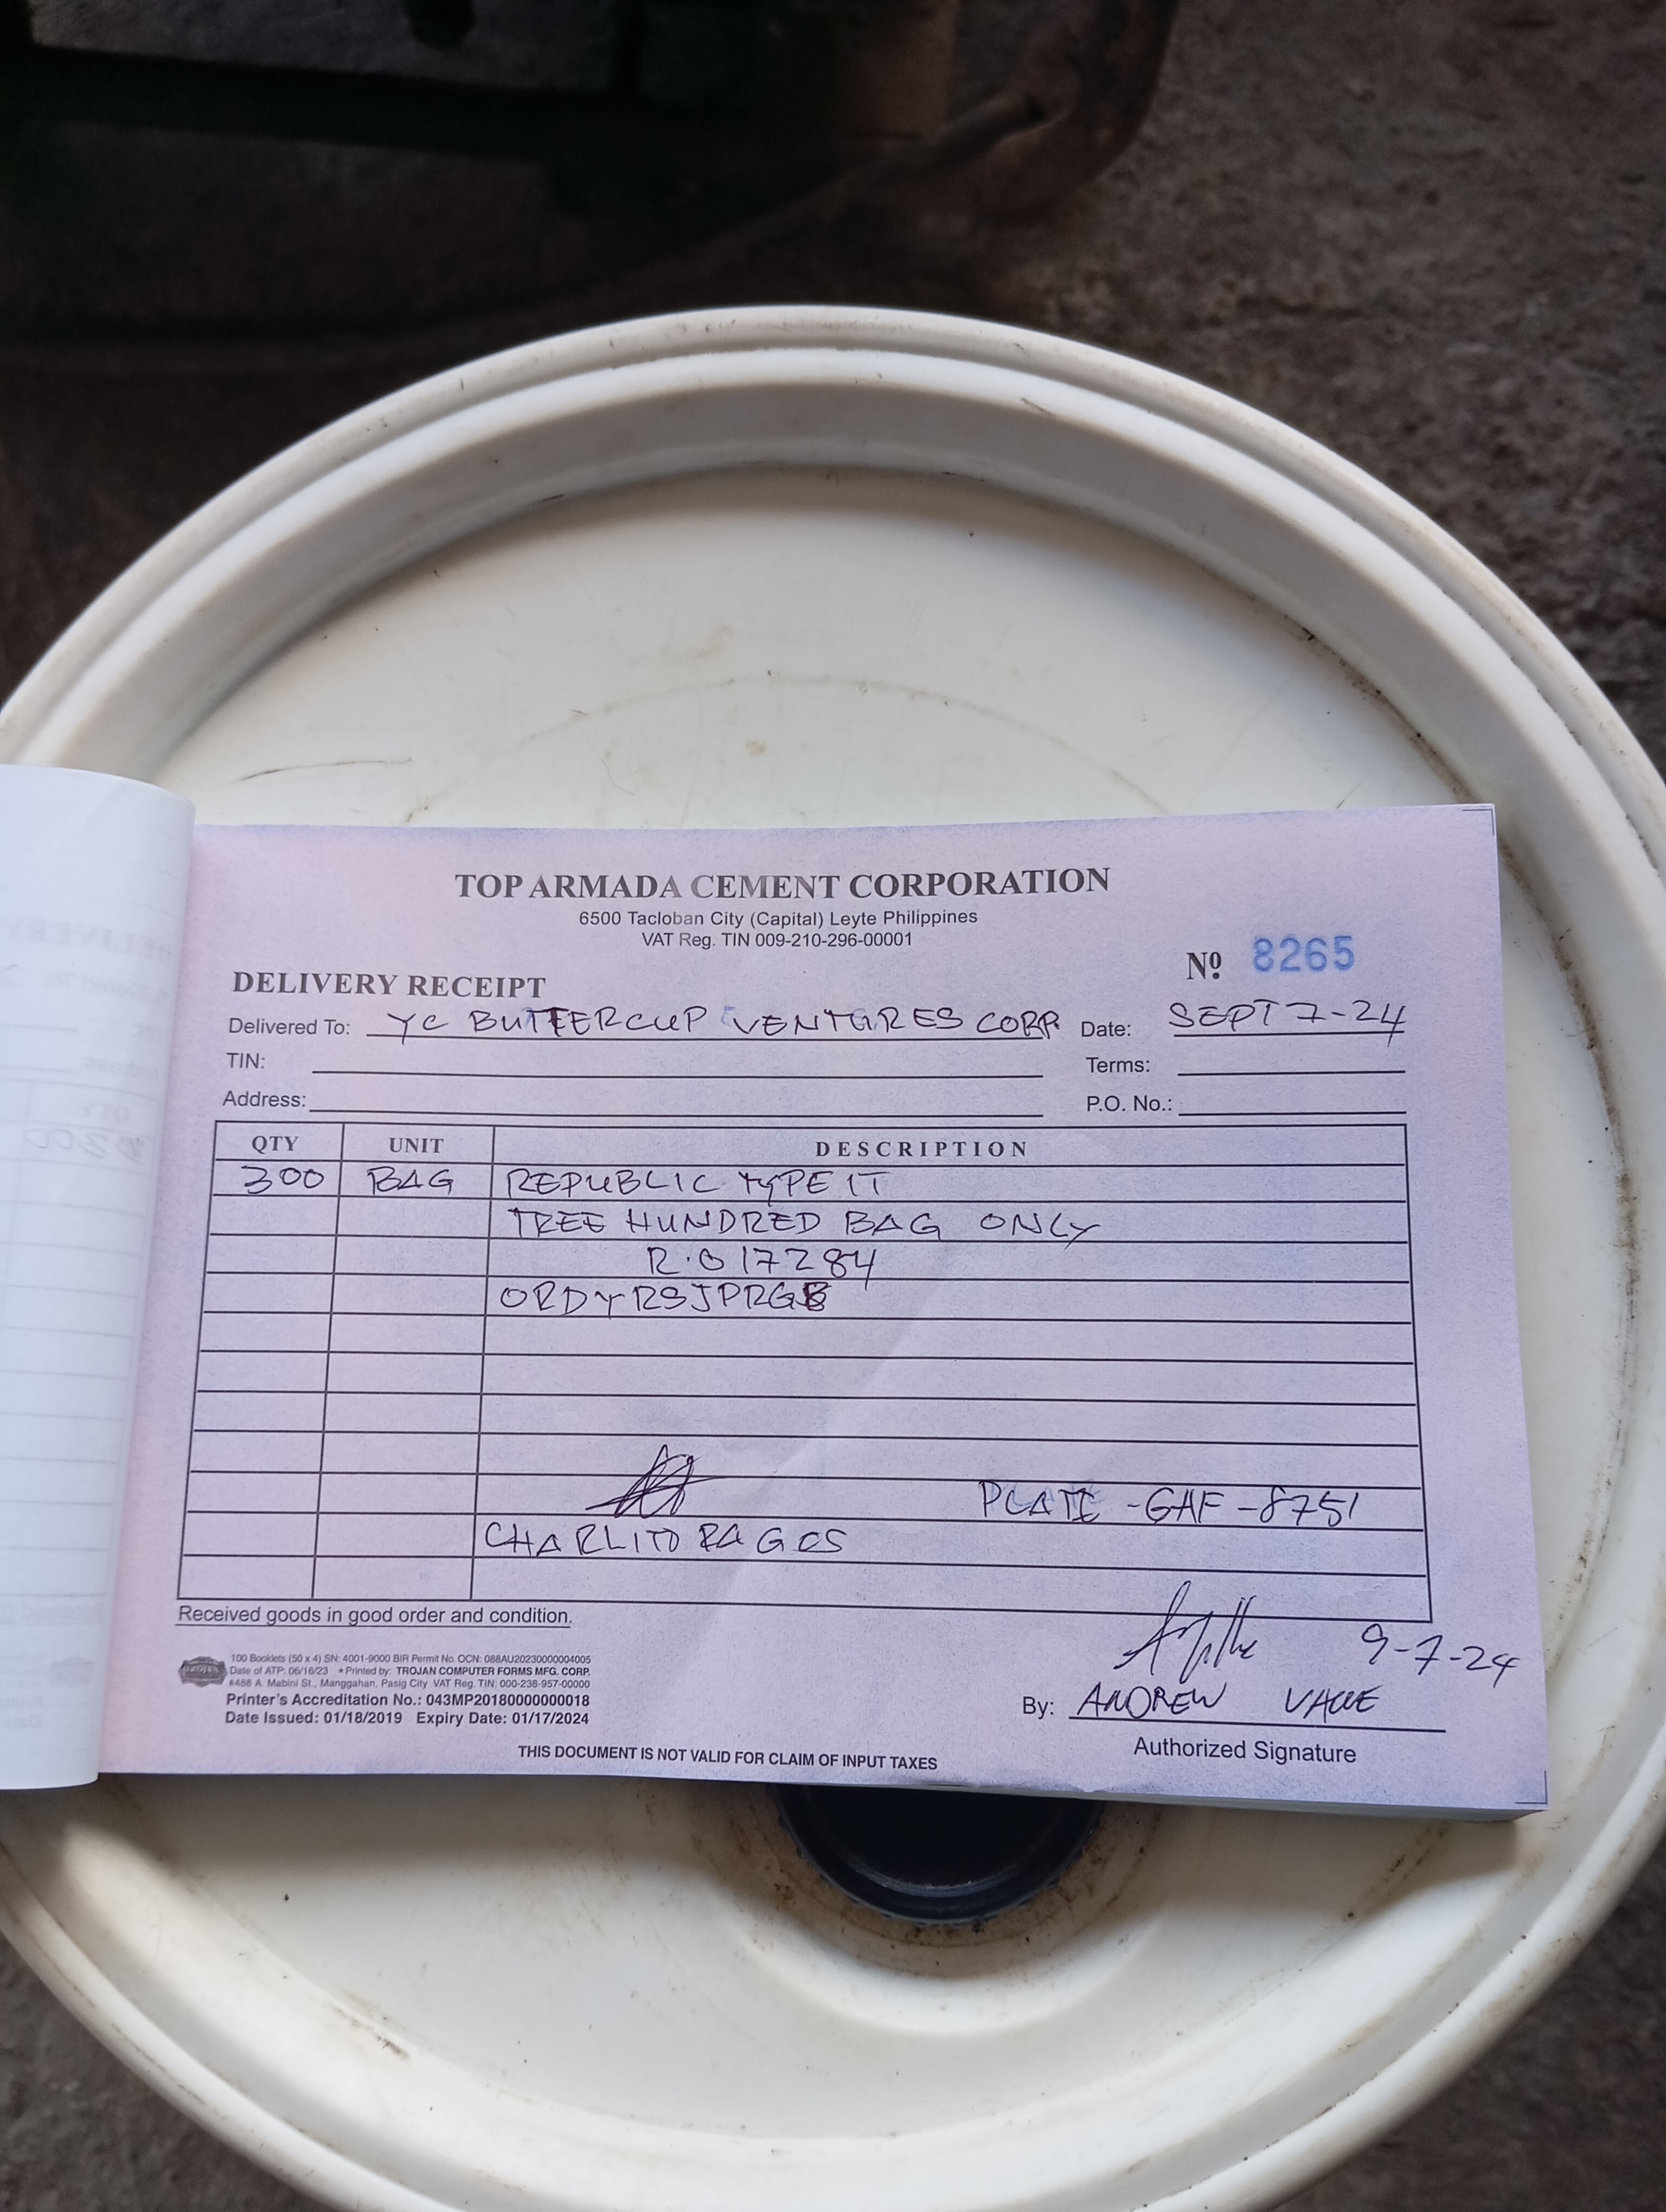 TOP ARMADA CEMENT CORPORATION
6500 Tacloban City (Capital) Leyte Philippines
VAT Reg. TIN 009-210-296-00001
Nº 8265
DELIVERY RECEIPT
Delivered To: YC BUTTERCUP VENTURES CORP. Date: SEPT 7-24
TIN: Terms:
Address: P.O. No.:
QTY UNIT DESCRIPTION
300 BAG REPUBLIC TYPE 1T
TREE HUNDRED BAG ONLY
R.O 17284
PLATE - GAF - 8751
CHARLITO RAGOS
Received goods in good order and condition.
9-7-24
100 Booklets (50 x 4) SN: 4001-9000 BIR Permit No. OCN: 088AU20230000004005
Date of ATP: 06/16/23 * Printed by: TROJAN COMPUTER FORMS MFG. CORP.
#486 A. Mabini St., Manggahan, Pasig City VAT Reg. TIN: 000-238-957-00000
Printer's Accreditation No.: 043MP20180000000018
Date Issued: 01/18/2019 Expiry Date: 01/17/2024
By: ANDREW
Authorized Signature
THIS DOCUMENT IS NOT VALID FOR CLAIM OF INPUT TAXES